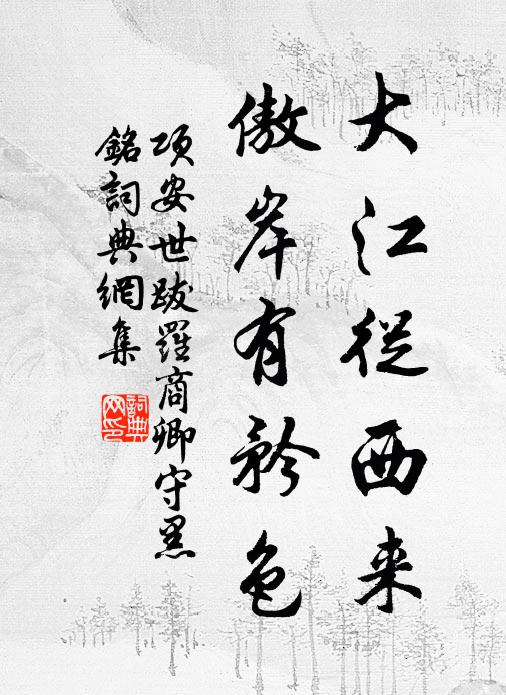 大江從西来
傲岸有矜色
項安世跋羅商卿守黑
銘詞典網集
詞典网印